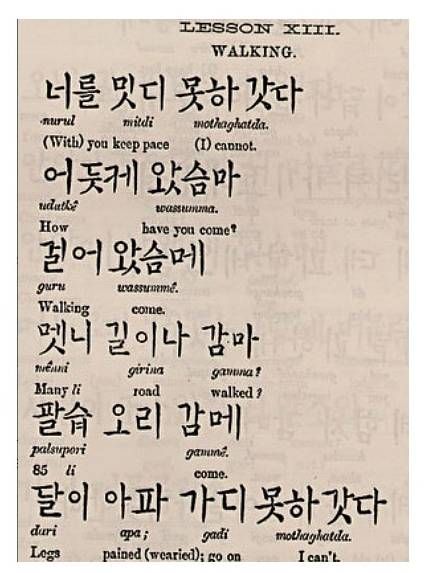 LESSON XIII.
WALKING.
너를 밋디 못하 갓다
nurul mitdi mothaghatda.
(With) you keep pace (I) cannot.
어듯게 왓슴마
udatkê wassumma.
How have you come?
걸어 왓슴메
guru wassummê.
Walking come.
멧니 길이나 감마
mênni girina gamma?
Many li road walked?
팔습 오리 감메
palsupori gammê.
85 li come.
달이 아파 가디 못하 갓다
dari apa; gadi mothaghatda.
Legs pained (wearied); go on I can't.